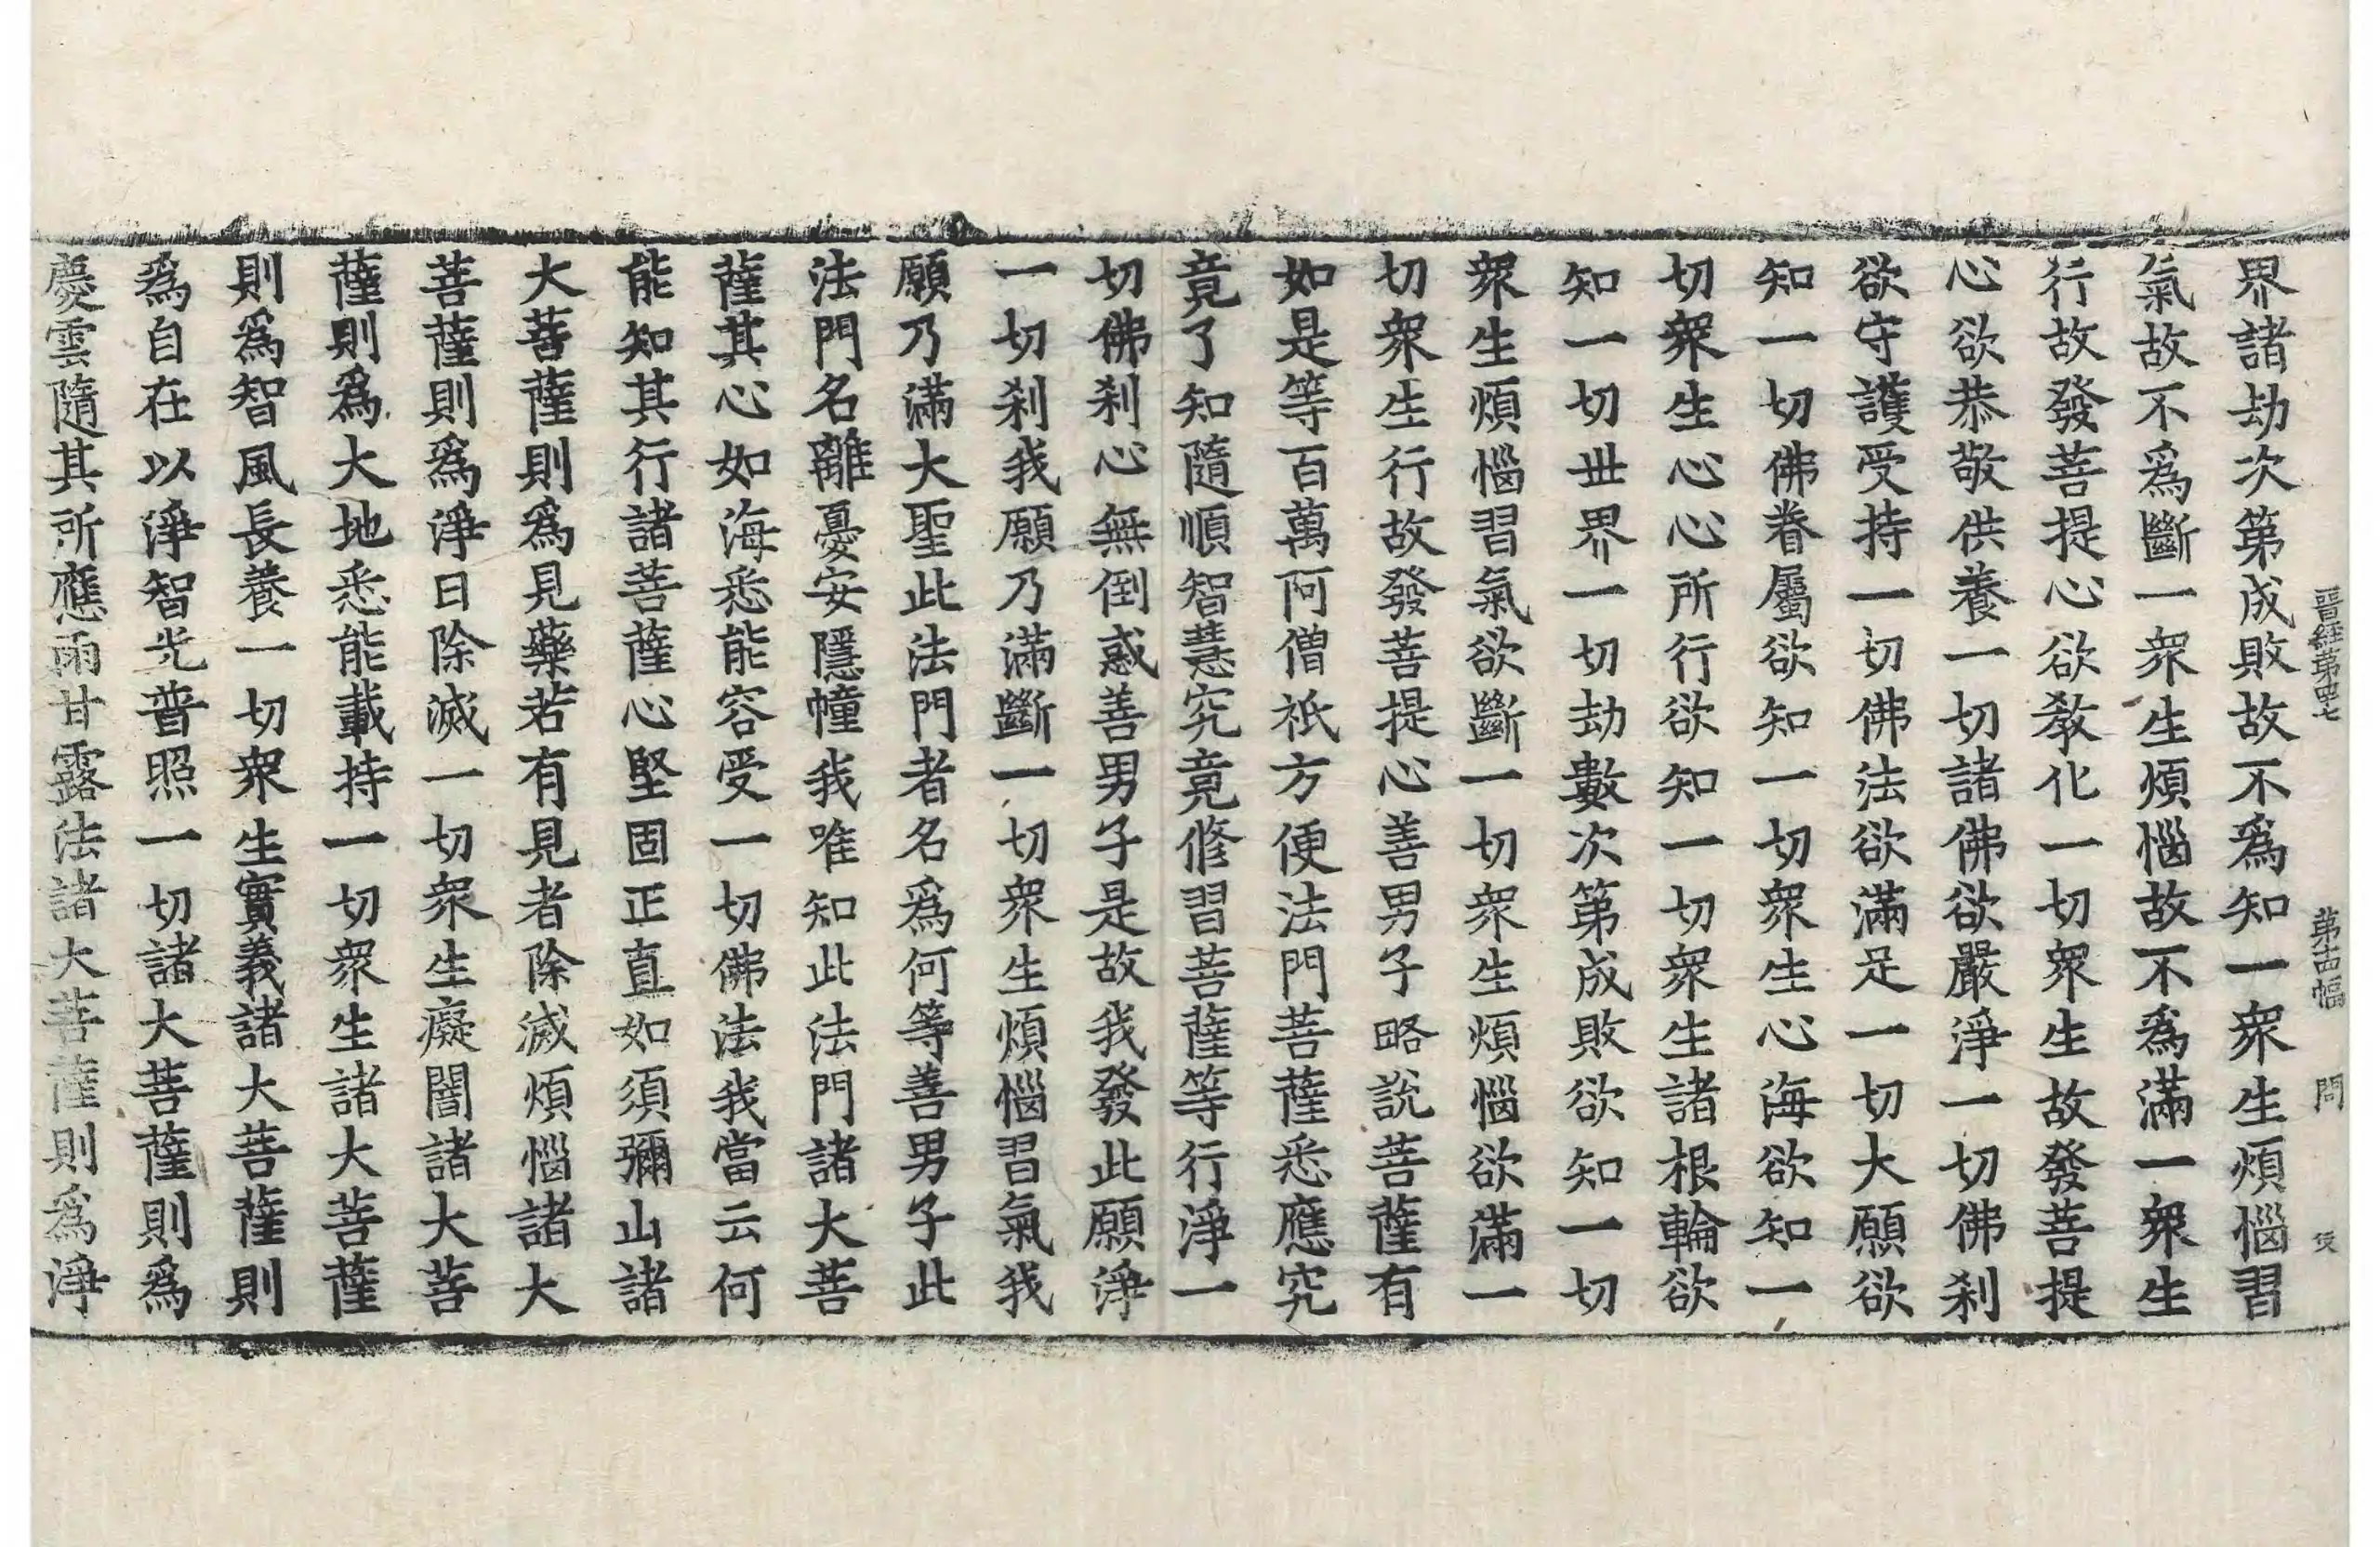 晉經第四七　第十四幅　問　伋
界諸劫次第成敗故不爲知一衆生煩惱習
氣故不爲斷一衆生煩惱故不爲滿一衆生
行故發菩提心欲教化一切衆生故發菩提
心欲恭敬供養一切諸佛欲嚴淨一切佛刹
欲守護受持一切佛法欲滿足一切大願欲
知一切佛眷屬欲知一切衆生心海欲知一
切衆生心心所行欲知一切衆生諸根輪欲
知一切世界一切劫數次第成敗欲知一切
衆生煩惱習氣欲斷一切衆生煩惱欲滿一
切衆生行故發菩提心善男子略說菩薩有
如是等百萬阿僧祇方便法門菩薩悉應究
竟了知隨順智慧究竟修習菩薩等行淨一
切佛刹心無倒惑善男子是故我發此願淨
一切刹我願乃滿斷一切衆生煩惱習氣我
願乃滿大聖此法門者名爲何等善男子此
法門名離憂安隱幢我唯知此法門諸大菩
薩其心如海悉能容受一切佛法我當云何
能知其行諸菩薩心堅固正直如須彌山諸
大菩薩則爲見藥若有見者除滅煩惱諸大
菩薩則爲淨日除滅一切衆生癡闇諸大菩
薩則爲大地悉能載持一切衆生諸大菩薩
則爲智風長養一切衆生實義諸大菩薩則
爲自在以淨智光普照一切諸大菩薩則爲
慶雲隨其所應雨甘露法諸大菩薩則爲淨